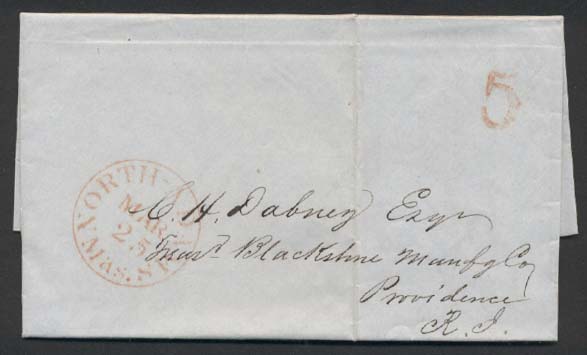 5
NORTH
MAR
25
Mas.
C. H. Dabney Esqr
Treasr. Blackstone Manufg Co
Providence
R. I.